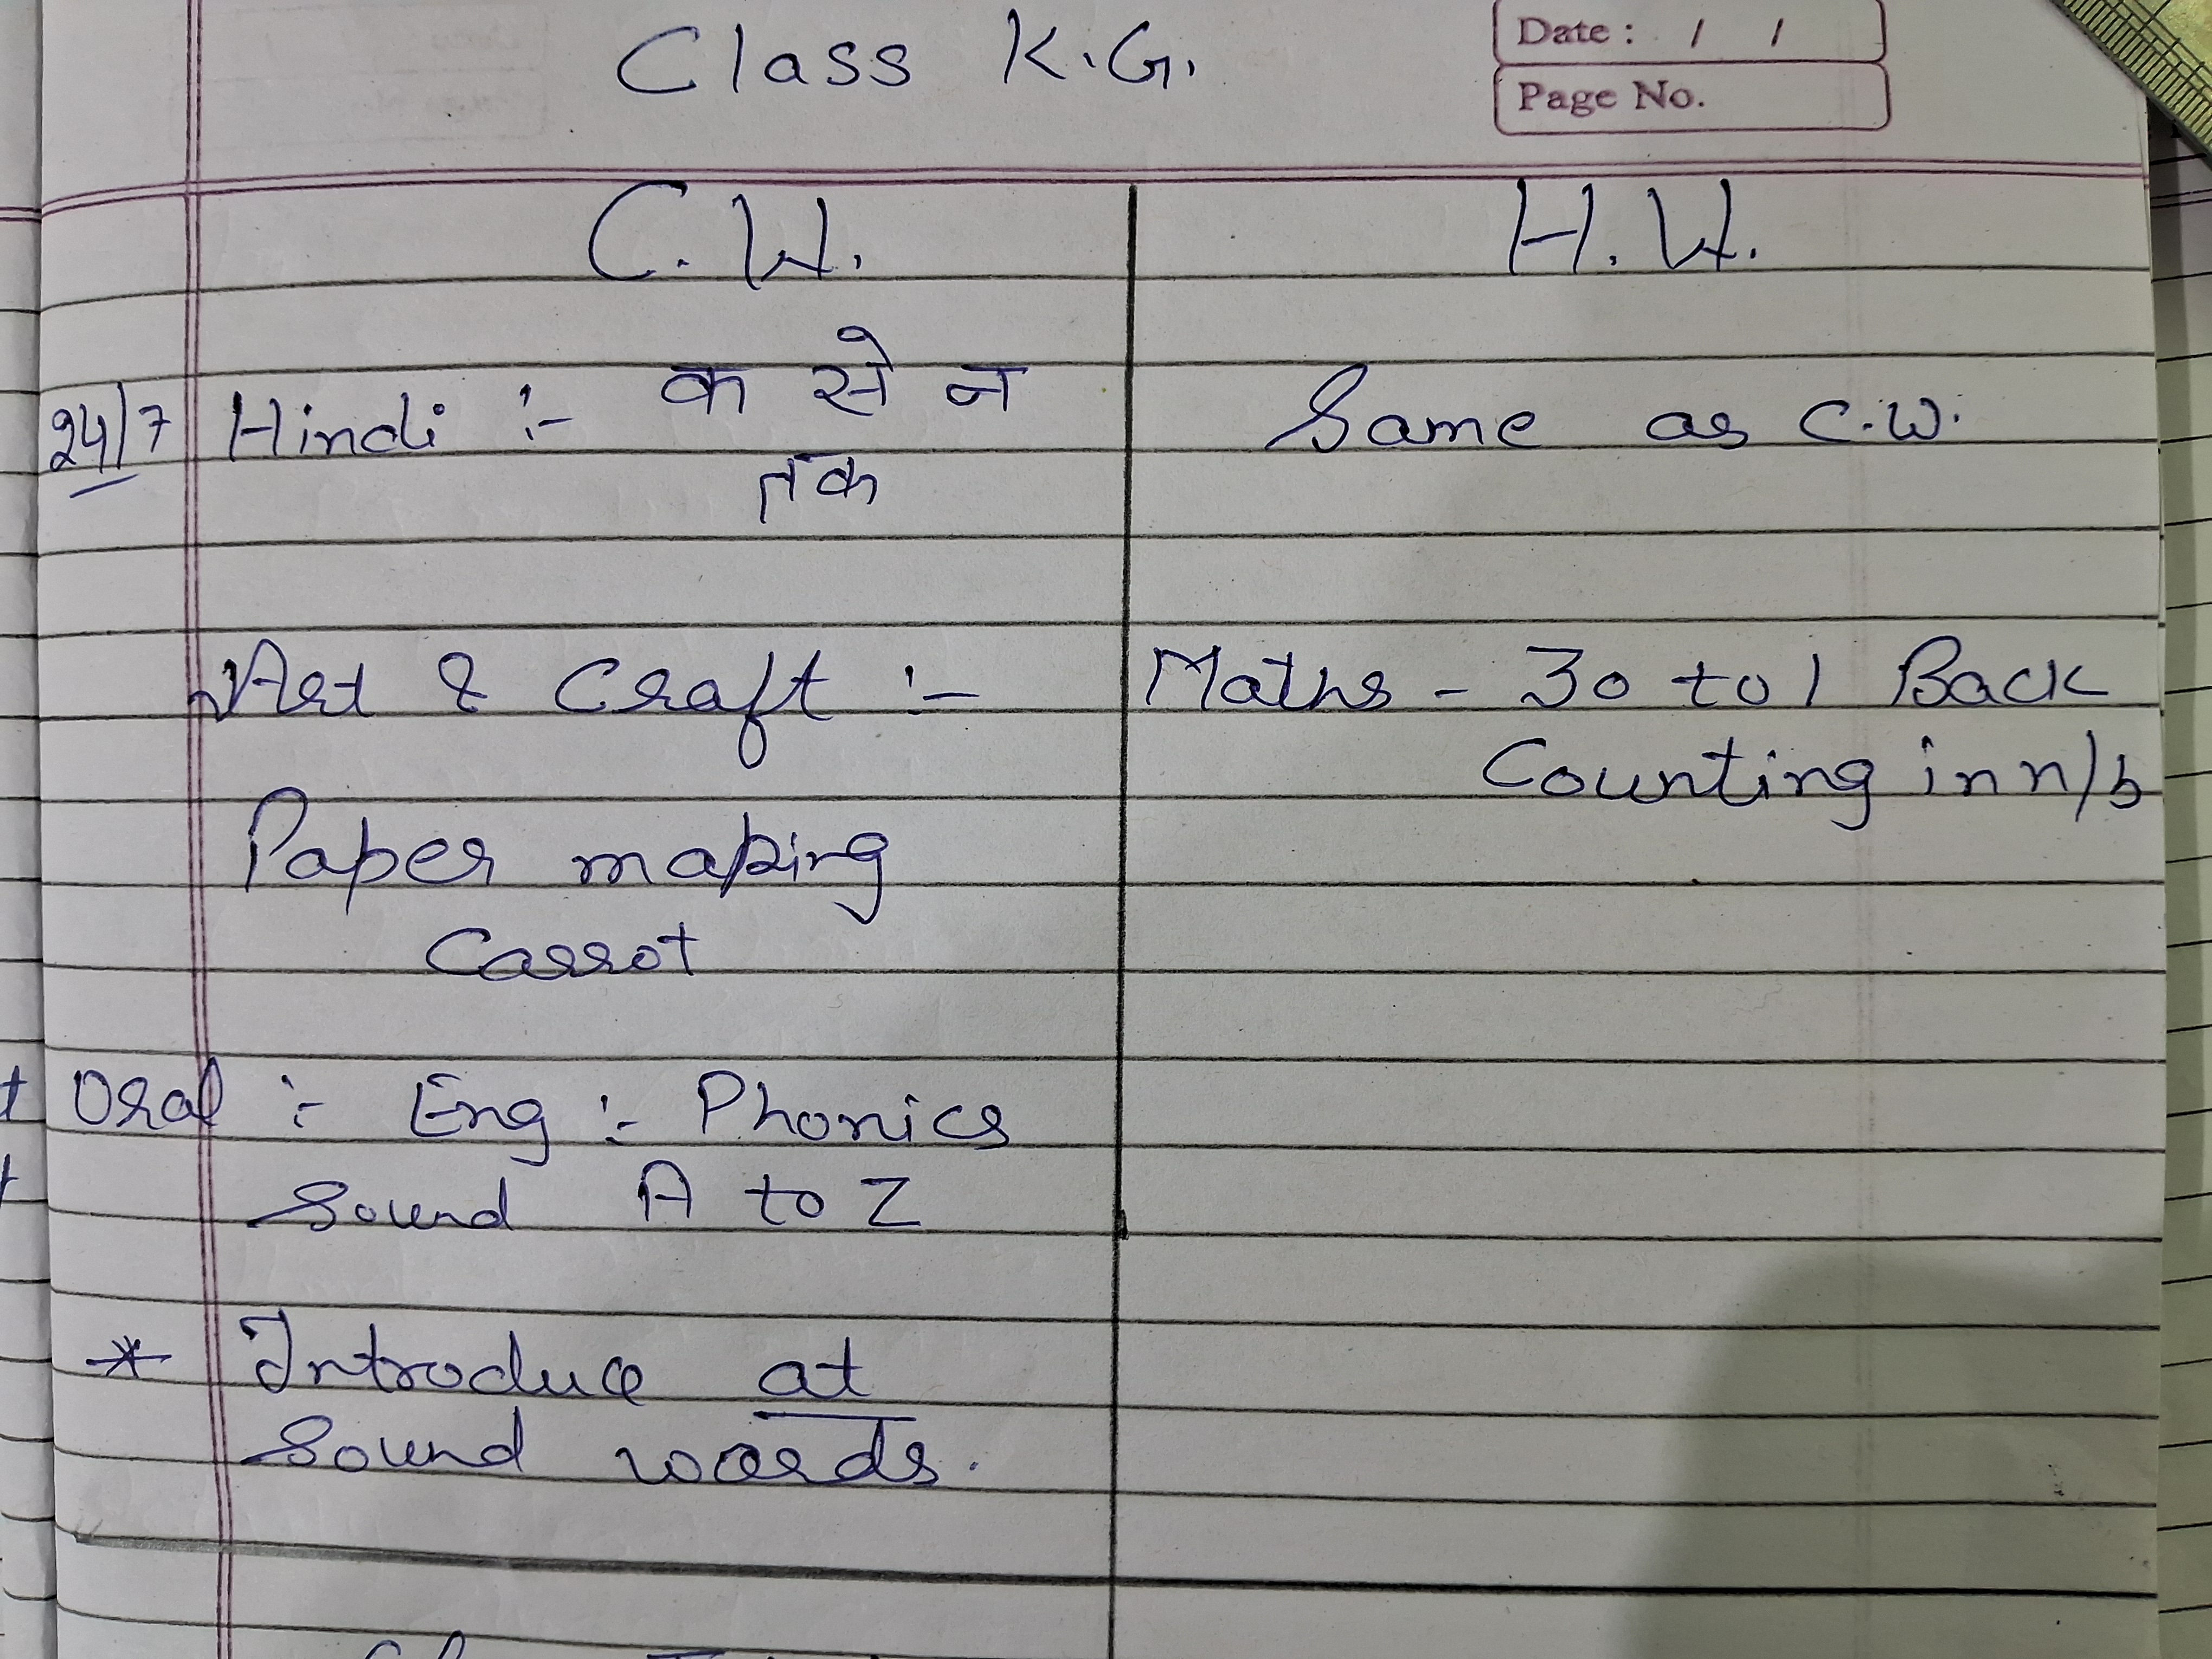 Class K.G.
Date : / /
Page No.
C.W.
H.W.
24/7 Hindi :- क से न
तक
Same as C.W.
Art & Craft :-
Paper making
Carrot
Maths - 30 to 1 Back
Counting in n/b
Oral :- Eng :- Phonics
Sound A to Z
* Introduce at
Sound words.